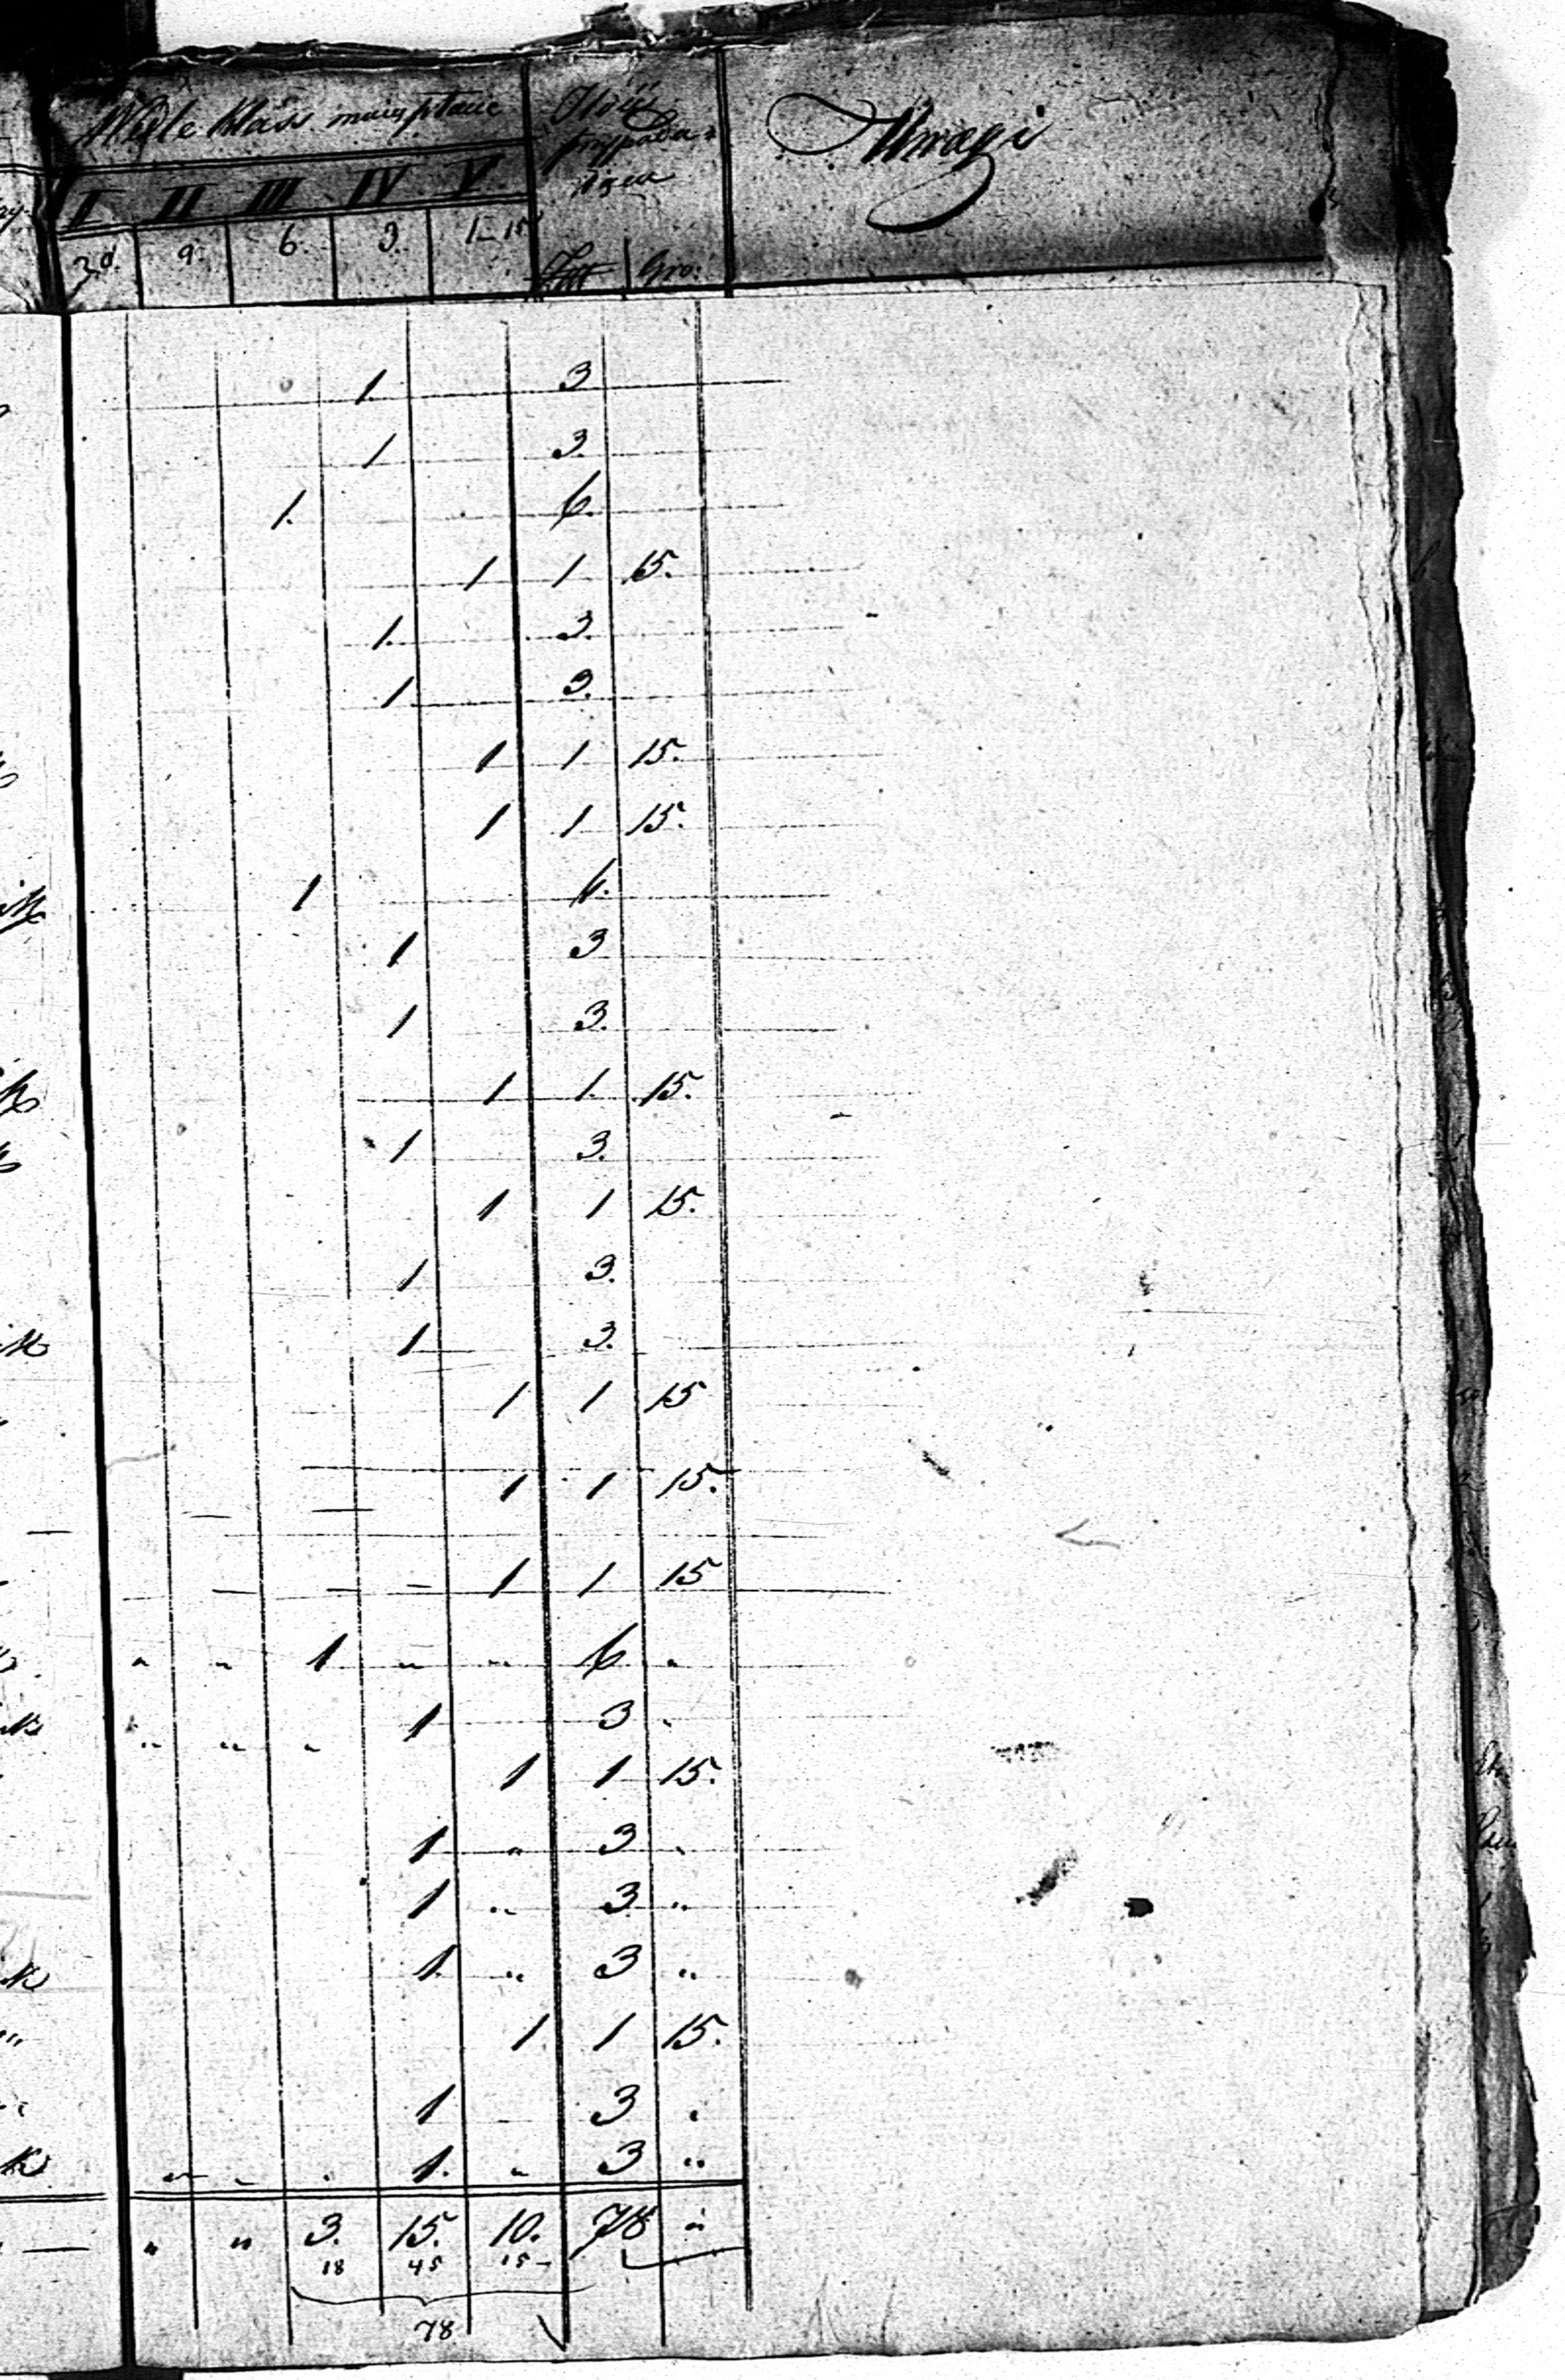 Wiele klass
Uwagi
I II III IV V
9. 6. 3. 1-15
Gro:
1. 3
1 3.
1. 6.
1 1 15.
1. 3.
1 3.
1 1 15.
1 1 15.
1 6.
1 3
1 3.
1 1. 15.
1 3.
1 1 15.
1 3.
1 3.
1 1 15
1 1 15.
— —
— — — 1 1 15
„ „ 1 „ „ 6 „
„ „ „ 1 3 „
1 1 15.
1 „ 3 „
1 „ 3 „
1. „ 3 „
1 1 15.
1 3 „
„ „ „ 1. „ 3 „
— „ „ 3. 15. 10. 78 „
18 45 15-
78